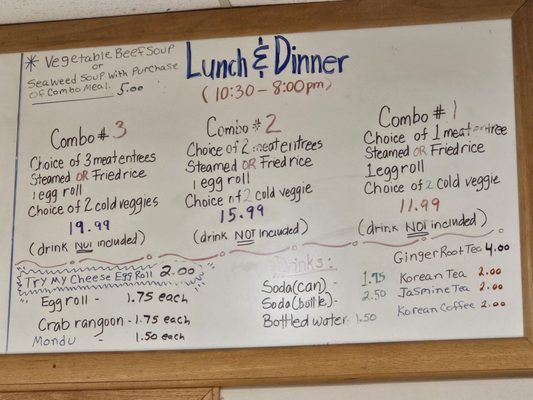 * Vegetable Beef Soup
or
Seaweed Soup with Purchase
of Combo Meal. 5.00
Lunch & Dinner
(10:30 - 8:00pm)
Combo # 3
Choice of 3 meat entrees
Steamed OR Fried rice
1 egg roll
Choice of 2 cold veggies
19.99
(drink NOT included)
Combo # 2
Choice of 2 meat entrees
Steamed OR Fried rice
1 egg roll
Choice of 2 cold veggie
15.99
(drink NOT included)
Combo # 1
Choice of 1 meat entree
Steamed OR Fried rice
1 egg roll
Choice of 2 cold veggie
11.99
(drink NOT included)
Try My Cheese Egg Roll 2.00
Egg roll - 1.75 each
Crab rangoon - 1.75 each
Mondu - 1.50 each
Drinks:
Soda (can) - 1.75
Soda (bottle) - 2.50
Bottled water 1.50
Ginger Root Tea 4.00
Korean Tea 2.00
Jasmine Tea 2.00
Korean Coffee 2.00